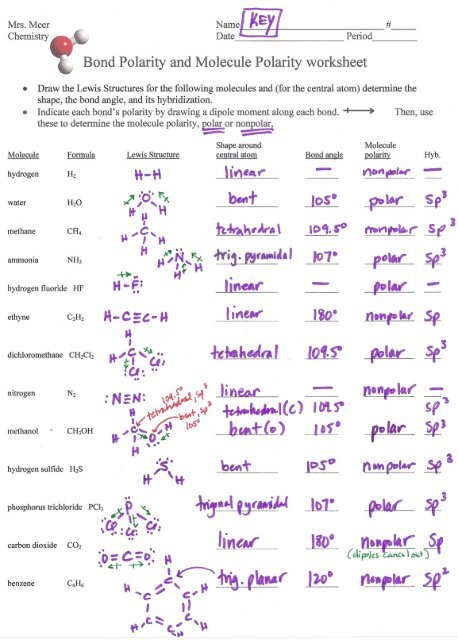 Mrs. Meer
Chemistry
Name KEY #
Date Period
Bond Polarity and Molecule Polarity worksheet
• Draw the Lewis Structures for the following molecules and (for the central atom) determine the shape, the bond angle, and its hybridization.
• Indicate each bond's polarity by drawing a dipole moment along each bond. Then, use these to determine the molecule polarity, polar or nonpolar,
Molecule Formula Lewis Structure Shape around central atom Bond angle Molecule polarity Hyb.
hydrogen H₂ H-H linear — nonpolar —
water H₂O O H H bent 105° polar sp³
methane CH₄ H H-C-H H tetrahedral 109.5° nonpolar sp³
ammonia NH₃ N H H H trig. pyramidal 107° polar sp³
hydrogen fluoride HF H-F: linear — polar —
ethyne C₂H₂ H-C≡C-H linear 180° nonpolar sp
dichloromethane CH₂Cl₂ H H C Cl: Cl: tetrahedral 109.5° polar sp³
nitrogen N₂ :N≡N: linear — nonpolar —
109.5° tetrahedral, sp³
bent, sp³ 105°
methanol CH₃OH H H C O H H tetrahedral (C) 109.5 sp³
bent (O) 105° polar sp³
hydrogen sulfide H₂S H S H bent 105° nonpolar sp³
phosphorus trichloride PCl₃ P Cl Cl Cl trigonal pyramidal 107° polar sp³
carbon dioxide CO₂ O=C=O linear 180° nonpolar sp
(dipoles cancel out)
benzene C₆H₆ H C C H H C C H C C H H trig. planar 120° nonpolar sp²